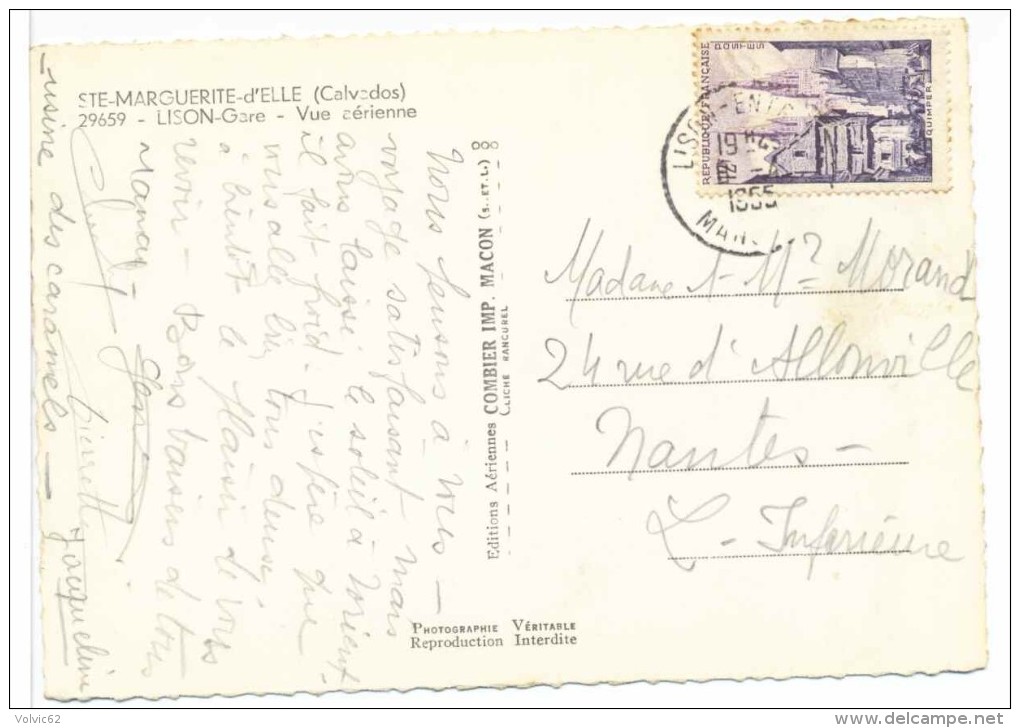 STE-MARGUERITE-d'ELLE (Calvados)
29659 - LISON-Gare - Vue aérienne
Nous pensons à vous -
voyage satisfaisant mais
avons laissé le soleil à Lorient -
il fait froid - j'espère que
vous allez bien tous deux,
à bientôt le plaisir de vous
revoir - Bons baisers de tous
Maman -
Pierrette
Jacqueline
usine des caramels -
Editions Aériennes COMBIER IMP. MACON (S.-ET-L.)
CLICHÉ RANCUREL
PHOTOGRAPHIE VÉRITABLE
Reproduction Interdite
REPUBLIQUE FRANÇAISE
POSTES
QUIMPER
19 H
1955
Madame & Mr Morand
24 rue d'Allonville
Nantes -
L - Inférieure
Volvic62
delcampe.net